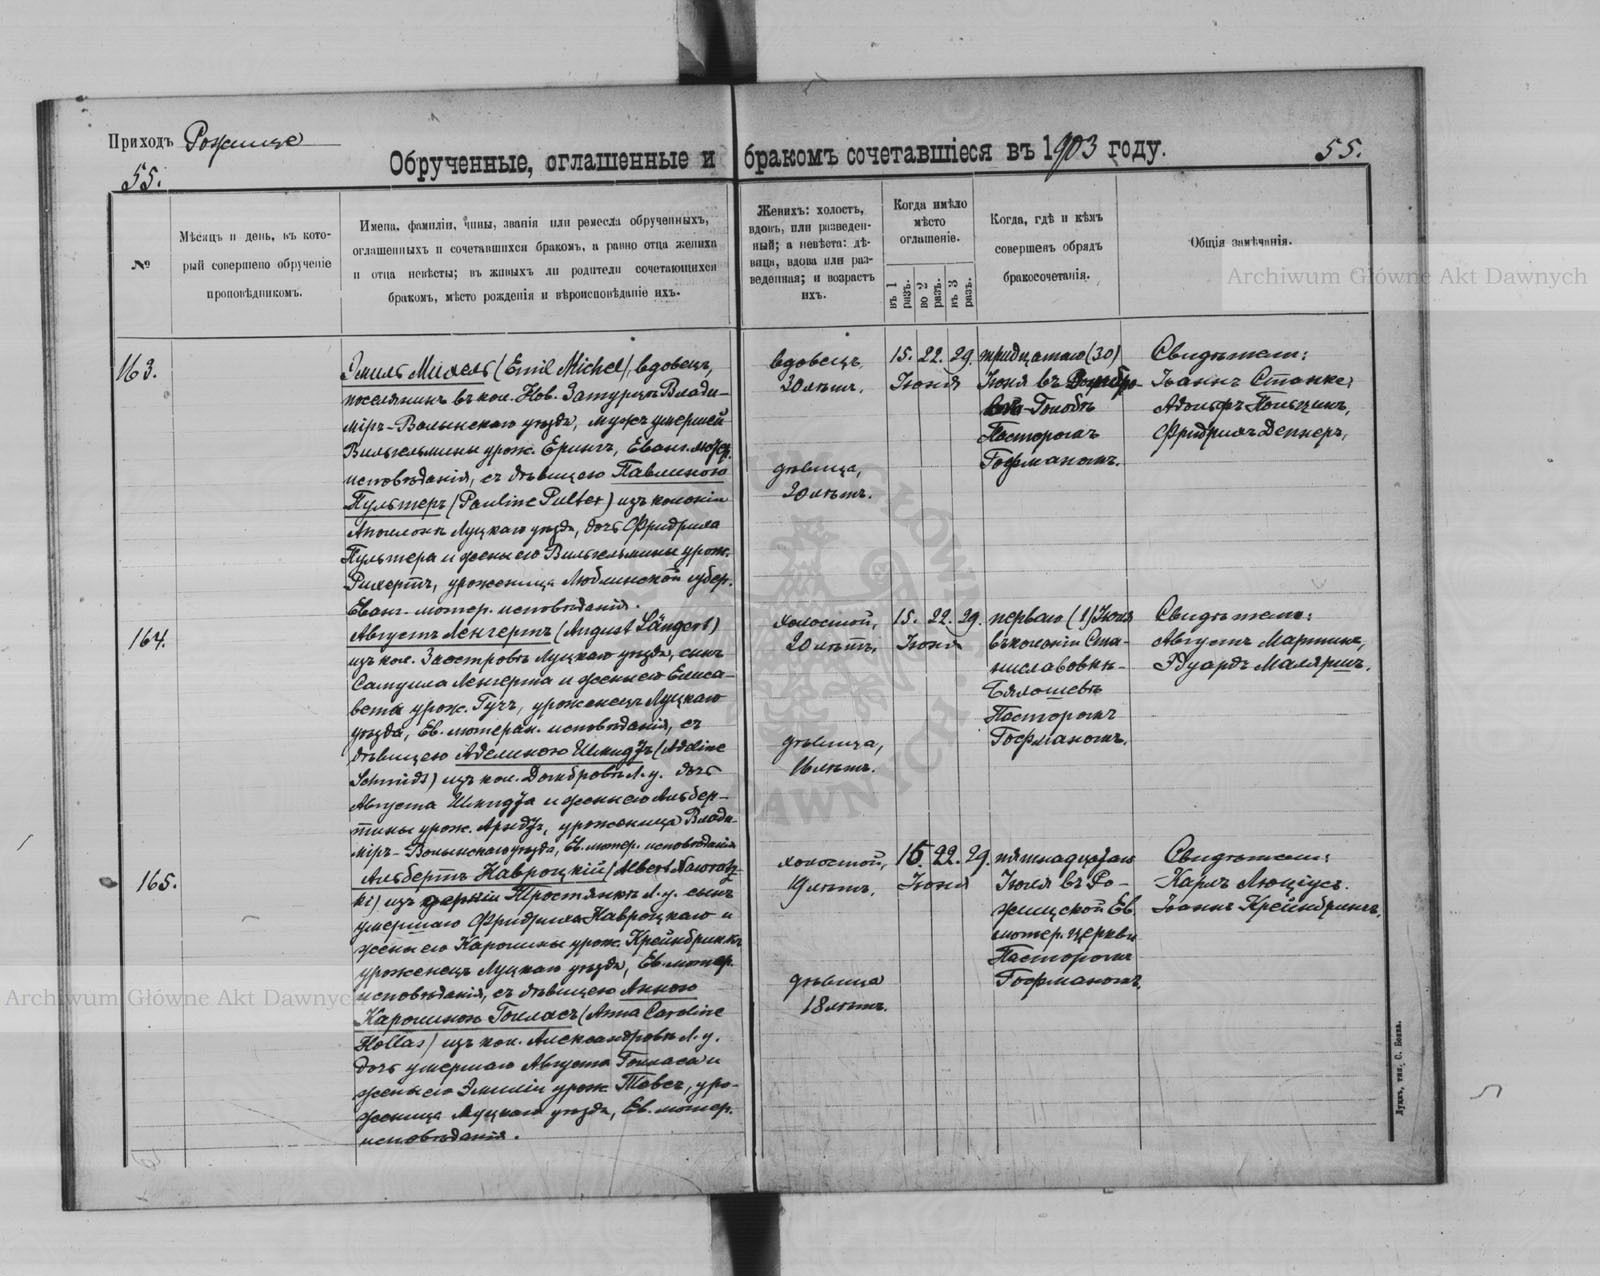 Приходъ Рожище
Обрученные, оглашенные и бракомъ сочетавшіеся въ 1903 году.
55.
55.
№
Мѣсяцъ и день, въ кото-
рый совершено обрученіе
проповѣдникомъ.
Имена, фамиліи, чины, званія или ремесла обрученныхъ,
оглашенныхъ и сочетавшихся бракомъ, а равно отца жениха
и отца невѣсты; въ живыхъ ли родители сочетающихся
бракомъ, мѣсто рожденія и вѣроисповѣданіе ихъ.
Женихъ: холостъ,
вдовъ, или разведен-
ный; а невѣста: дѣ-
вица, вдова или раз-
веденная; и возрастъ
ихъ.
Когда имѣло
мѣсто
оглашеніе.
въ 1 разъ.
во 2 разъ.
въ 3 разъ.
Когда, гдѣ и кѣмъ
совершенъ обрядъ
бракосочетанія.
Общія замѣчанія.
163.
Эмиль Михель (Emil Michel), вдовецъ,
поселянинъ въ кол. Нов. Затурцы Влади-
міръ-Волынскаго уѣзда, мужъ умершей
Вильгельмины урож. Ерингъ, Еванг. лютер.
исповѣданія, съ дѣвицею Павлиною
Пультеръ (Pauline Pulter) изъ колоніи
Аполлонъ Луцкаго уѣзда, дочь Фридриха
Пультера и жены его Вильгельмины урож.
Рихертъ, уроженица Люблинской губер.
Еванг.-лютер. исповѣданія.
вдовецъ
30 лѣтъ.
дѣвица,
20 лѣтъ.
15. 22. 29.
Іюня
тридцатаго (30)
Іюня въ
Голобѣ
Пасторомъ
Гофманомъ.
Свидѣтели:
Іоаннъ Станке,
Адольфъ Польцинъ,
Фридрихъ Деннеръ,
164.
Августъ Ленгертъ (August Längert)
изъ кол. Заостровъ Луцкаго уѣзда, сынъ
Самуила Ленгерта и жены его Елиса-
веты урож. Гучъ, уроженецъ Луцкаго
уѣзда, Ев. лютеран. исповѣданія, съ
дѣвицею Аделиною Шмидтъ (Adeline
Schmidt) изъ кол. Домбровъ Л. у. дочь
Августа Шмидта и жены его Альбер-
тины урож. Арндтъ, уроженица Влади-
міръ-Волынскаго уѣзда, Ев. лютер. исповѣданія
холостой,
20 лѣтъ.
дѣвица,
16 лѣтъ.
15. 22. 29.
Іюня
перваго (1) Іюля
въ колоніи Ста-
ниславовкѣ-
Бялошевѣ
Пасторомъ
Гофманомъ.
Свидѣтели:
Августъ Мартинъ,
Эдуардъ Маляришъ.
165.
Альбертъ Навроцкій (Albert Nawrotz-
ki) изъ Тростянкъ Л. у. сынъ
умершаго Фридриха Навроцкаго и
жены его Каролины урож. Крейнбринкъ
уроженецъ Луцкаго уѣзда, Ев. лютер.
исповѣданія, съ дѣвицею Анною
Каролиною Голласъ (Anna Caroline
Hollas) изъ кол. Александровъ Л. у.
дочь умершаго Августа Голласа и
жены его Эмиліи урож. Тобсъ, уро-
женица Луцкаго уѣзда, Ев. лютер.
исповѣданія.
холостой,
19 лѣтъ.
дѣвица
18 лѣтъ.
15. 22. 29.
Іюня
пятнадцатаго
Іюля въ Ро-
жищской Ев.
лютер. церкви
Пасторомъ
Гофманомъ.
Свидѣтели:
Карлъ Люціусъ.
Іоаннъ Крейнбринкъ.
Луцкъ, тип. С. Бокъ.
Archiwum Główne Akt Dawnych
Archiwum Główne Akt Dawnych